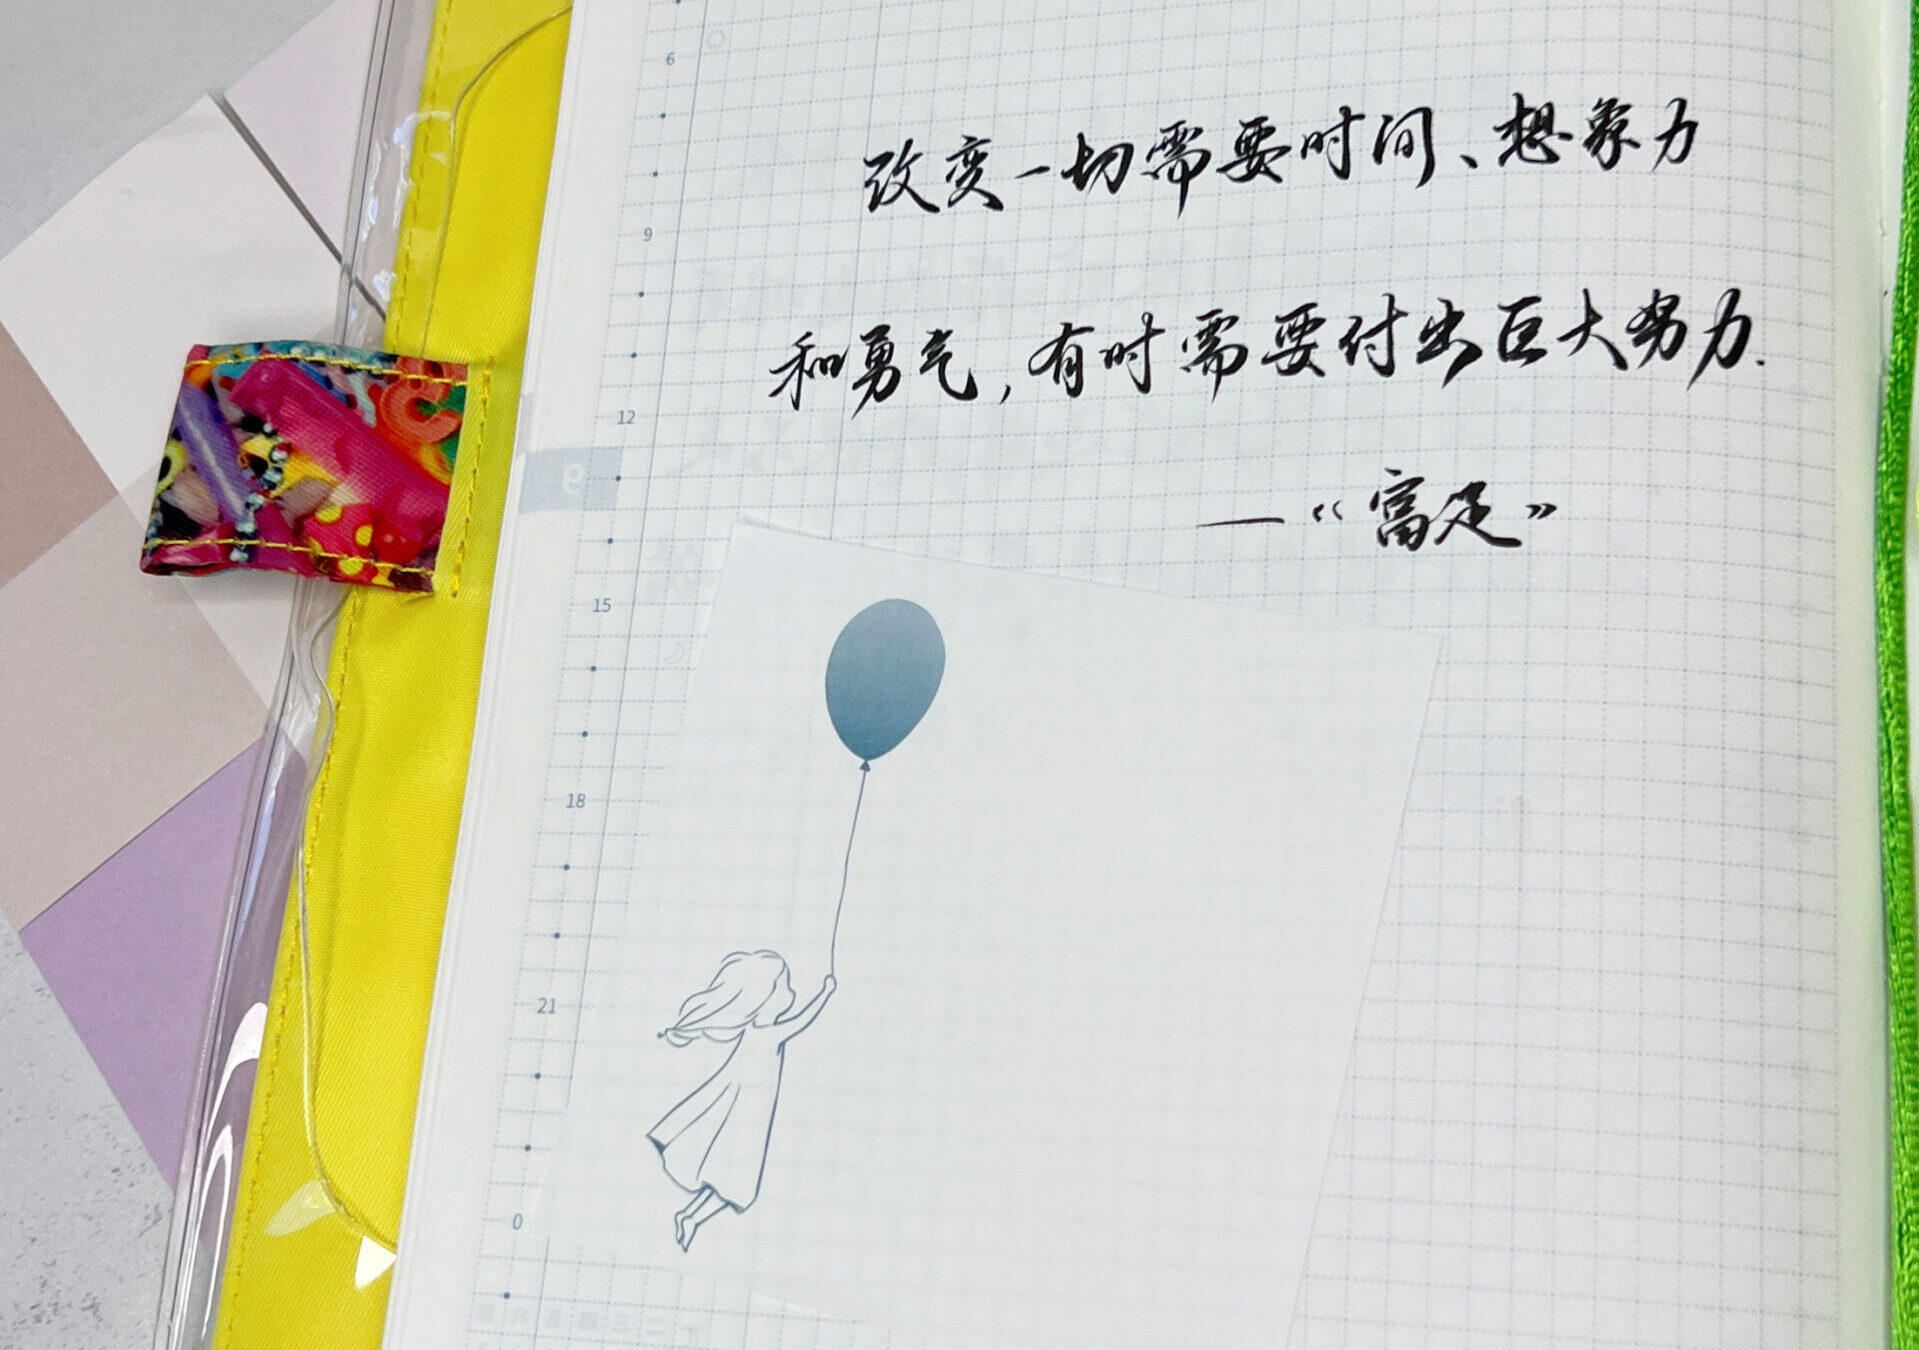 改变一切需要时间、想象力
和勇气，有时需要付出巨大努力.
—《富足》
6
9
12
15
18
21
0